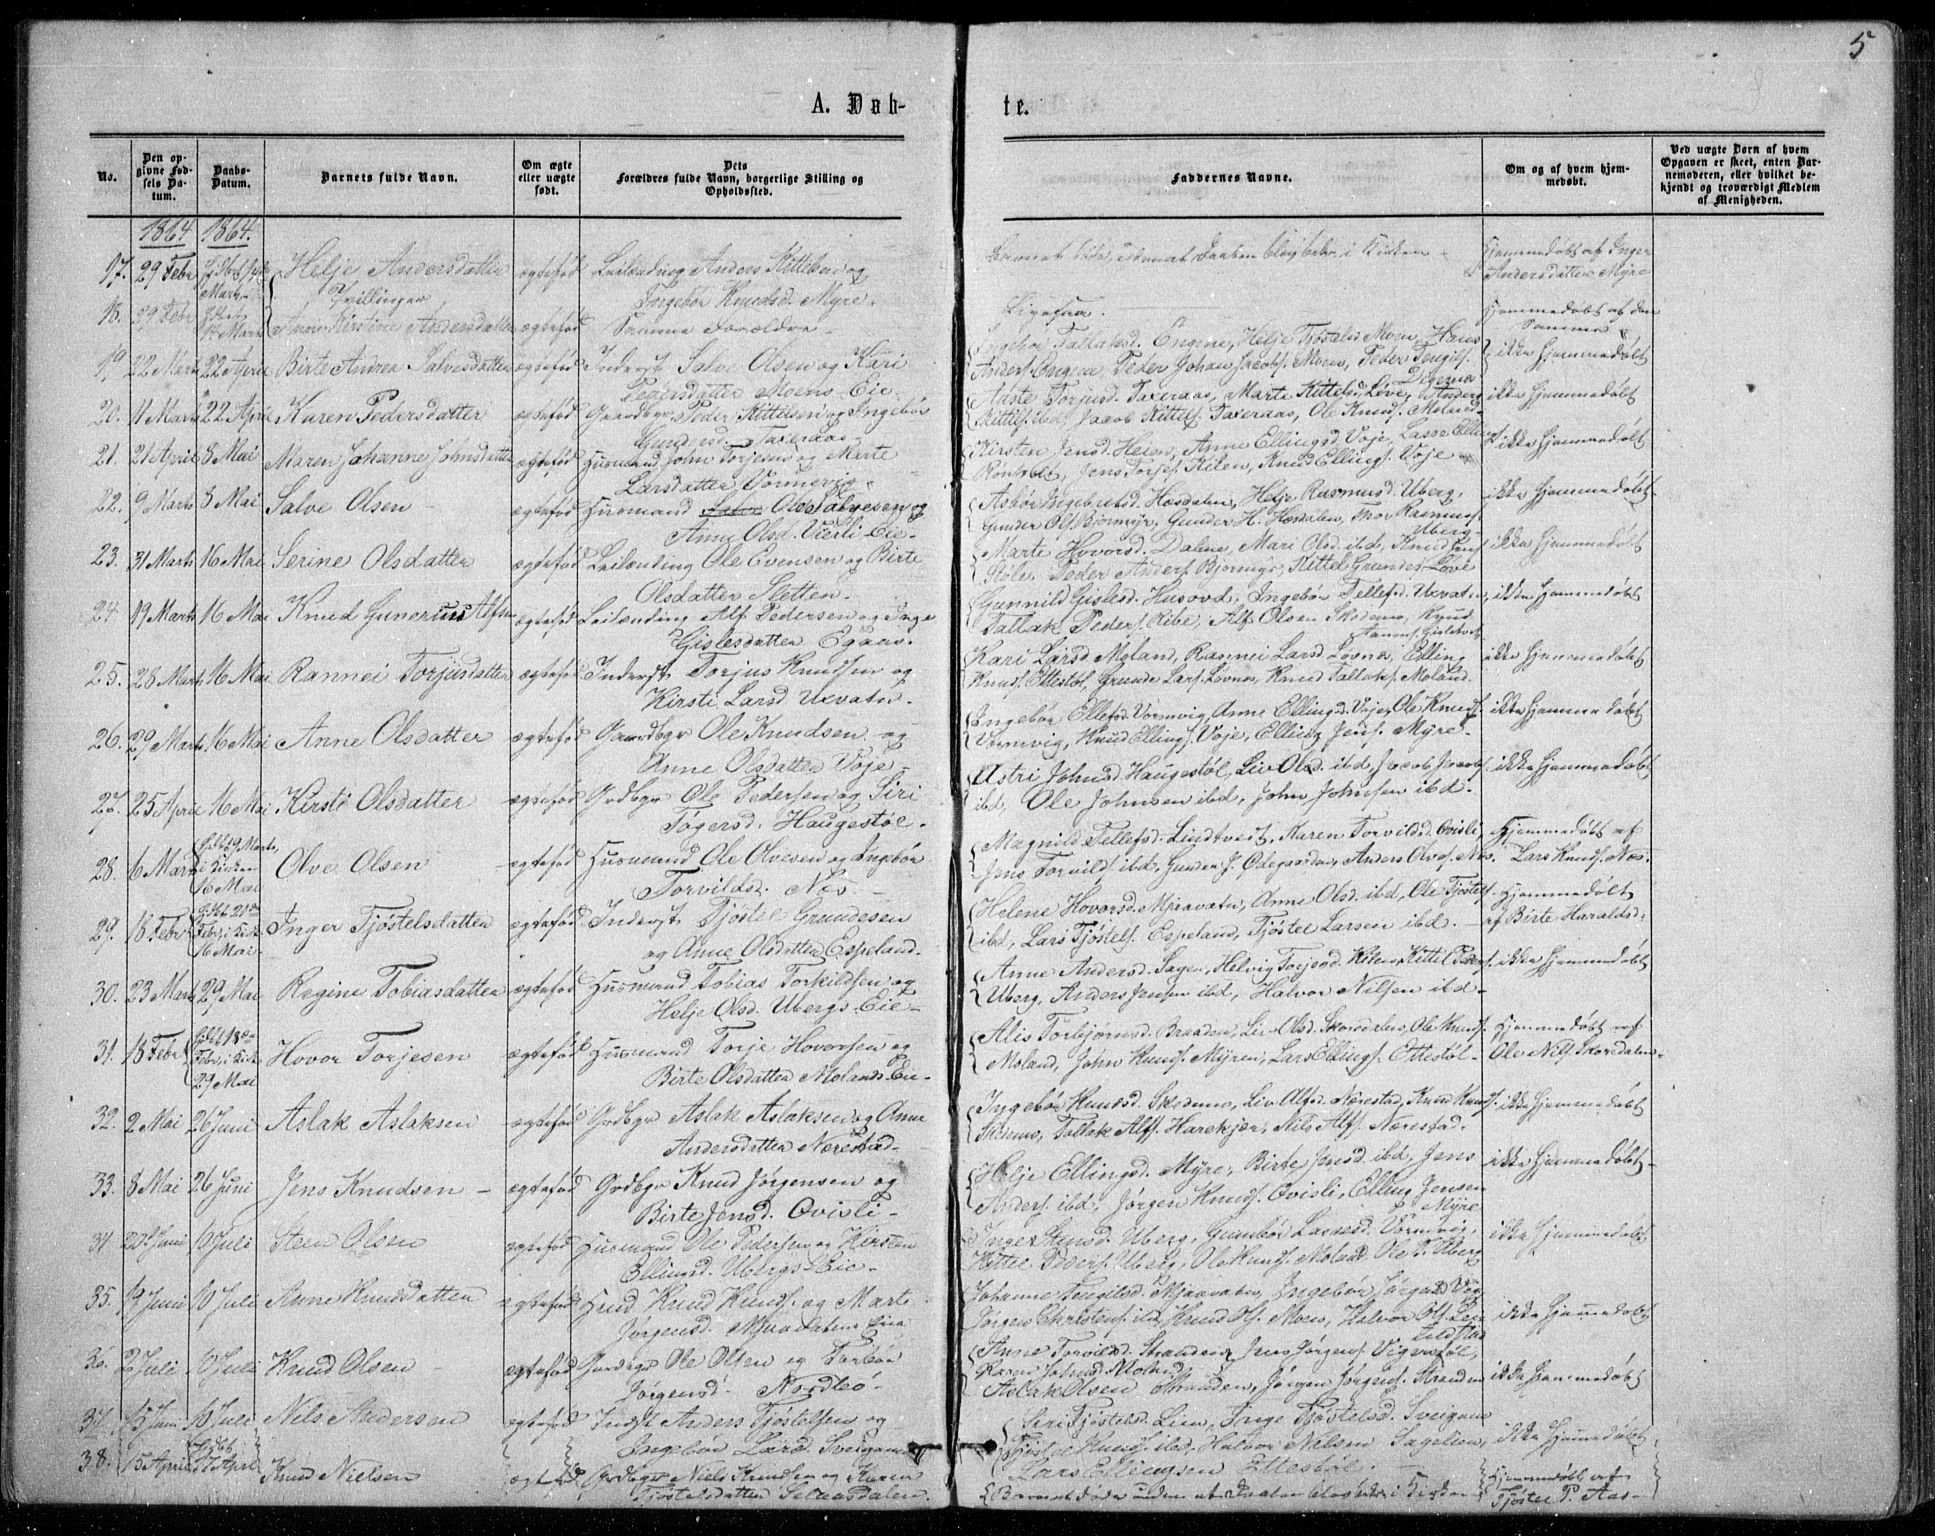 5
A. Døb-
te.
No.
Den op-
givne Fød-
sels Da-
tum.
Daabs-
Datum.
Barnets fulde Navn.
Om ægte
eller uægte
født.
Dets
Forældres fulde Navn, borgerlige Stilling og
Opholdssted.
Faddernes Navne.
Om og af hvem hjem-
medøbt.
Ved uægte Børn af hvem
Opgaven er skeet, enten Bar-
nemoderen, eller hvilket be-
kjendt og troværdigt Medlem
af Menigheden.
1864 1864.
17. 29 Febr Helje Andersdatter ægtefød Leilænding Anders Kittelsen og
Marts Tvillinger Ingebor Knudsd. Myre.
Barnet døde, udenat Daaben blev bekr. i Kirken
Hjemmedøbt af Inger
Andersdatter Myre
18. 29 Febr 14 Marts Anne Kirstine Andersdatter ægtefød Samme Forældre
Ligesaa.
Hjemmedøbt af den
Samme
19. 22 Marts 22 April Birte Andrea Salvesdatter ægtefød Inderst Salve Olsen og Kari
Pedersdatter Moens Eie
Ingebor Tallaksd. Engene, Helje Tjøstelsd Moen, Hans
Anders. Engene, Peder Johan Jacobs. Moen, Peder Tengils.
Digernes
ikke hjemmedøbt
20. 11 Marts 22 April Karen Pedersdatter ægtefød Gaardbgr Peder Kittelsen og Ingebør
Gundersd. Taxeraas
Aaste Torjusd. Taxeraas, Marte Kittelsd. Løve, Anders
Kittels. ibd, Jacob Kittels. Taxeraas, Ole Knuds. Moland
ikke hjemmedøbt
21. 21 April 8 Mai Maren Johanne Johnsdatter ægtefød Husmand John Torjesen og Marte
Larsdatter Vormvig
Kirsten Jensd. Heien, Anne Ellingsd. Voje, Lasse Ellings
Rønholt, Jens Torjes. Kilen, Knud Ellings. Voje
ikke hjemmedøbt
22. 9 Marts 8 Mai Salve Olsen ægtefød Husmand Ole Salvesen og
Anne Olsd. Vierli Eie
Asbør Ingebretsd. Hæsdalen, Helje Rasmusd. Uberg,
Gunder Ols. Bjørmyr, Gunder H. Hæsdalen, Thor Rasmus.
Uberg
ikke hjemmedøbt
23. 31 Marts 16 Mai Serine Olsdatter ægtefød Leilænding Ole Evensen og Birte
Olsdatter Sletten
Marte Hovorsd. Dalene, Mari Olsd. ibd, Knud Jens.
Støle, Peder Anders. Bjørmyr, Kittel Grundes. Løve
ikke hjemmedøbt
24. 19 Marts 16 Mai Knud Gunerius Alfsen ægtefød Leilænding Alf Pedersen og Inge
Gislesdatter Egaas
Gunnild Gislesd. Husovd, Ingebør Tellefsd. Uxvatn,
Tallak Peders. Ribe, Alf Olsen Skedsmo, Knud
ikke hjemmedøbt
25. 28 Marts 16 Mai Rannei Torjusdatter ægtefød Inderst Torjus Knudsen og
Kirsti Larsd Uxvatn
Kari Larsd Moland, Rannei Larsd Lovnes, Elling
Knuds. Ottestøl, Grunde Lars. Lovnes, Knud Tallaks. Moland
ikke hjemmedøbt
26. 29 Marts 16 Mai Anne Olsdatter ægtefød Gaardbgr Ole Knudsen og
Anne Olsdatter Voje
Ingebør Ellefsd. Vormvig, Anne Ellingsd. Voje, Ole Knuds.
Vormvig, Knud Ellings. Voje, Elling Jens. Myre
ikke hjemmedøbt
27. 25 April 16 Mai Kirsti Olsdatter ægtefød Grdbgr Ole Pedersen og Siri
Tøgersd. Haugestøl
Astri Johnsd Haugestøl, Liv Olsd. ibd, Jacob Jacobs.
ibd, Ole Johnsen ibd, John Johnsen ibd.
ikke hjemmedøbt
28. 6 Marts 16 Mai Olve Olsen ægtefød Husmand Ole Olvesen og Ingebør
Torvildsd. Næs
Magnild Tellefsd. Lindtveit, Maren Torvildsd. Ovisli,
Jens Torvilds. ibd, Gunder J. Ødegaarden, Anders Olves. Næs
Hjemmedøbt af
Lars Knuds. Næs
29. 18 Febr 16 Mai Inger Tjøstelsdatter ægtefød Inderst Tjøstel Grundesen
og Anne Olsdatter Espeland
Helene Hovorsd. Mjaavatn, Anne Olsd. ibd, Ole Tjøstels.
ibd, Lars Tjøstels. Espeland, Tjøstel Larsen ibd.
Hjemmedøbt
af Birte Haraldsd.
30. 23 Marts 29 Mai Regine Tobiasdatter ægtefød Husmand Tobias Torkildsen og
Helje Olsd. Ubergs Eie
Anne Andersd. Sagen, Helvig Torjesd. Kilen, Kittel Peders.
Uberg, Anders Jensen ibd, Halvor Nilsen ibd
ikke hjemmedøbt
31. 18 Febr 29 Mai Hovor Torjesen ægtefød Husmand Torje Hovorsen og
Birte Olsdatter Molands Eie
Alis Torbjørnsd. Braaden, Liv Olsd. Skoredalen, Ole Knuds.
Moland, John Knuds. Myren, Lars Ellings. Ottestøl
Hjemmedøbt af
Ole Nils. Skoredalen
32. 2 Mai 26 Juni Aslak Aslaksen ægtefød Grdbgr Aslak Aslaksen og Anne
Andersdatter Nærestad
Ingebør Knudsd. Skedsmo, Liv Alfsd. Nærestad, Knud Knuds.
Skedsmo, Tallak Alfs. Harekjær, Nils Alfs. Nærestad.
ikke hjemmedøbt
33. 8 Mai 26 Juni Jens Knudsen ægtefød Grdbgr Knud Jørgensen og
Birte Jensd. Ovisli
Helje Ellingsd. Myre, Birte Jensd. ibd, Jens
Anders. ibd, Jørgen Knuds. Ovisli, Elling Jensen
Myre
ikke hjemmedøbt
34 Juni 10 Juli Steen Olsen ægtefød Husmand Ole Pedersen og Kirsten
Ellingsd. Ubergs Eie
Inger Stensd. Uberg, Gunbør Lassesd. Vormvig,
Kittel Peders. Uberg, Ole Knuds. Moland, Ole P. Uberg
ikke hjemmedøbt
35. Juni 10 Juli Anne Knudsdatter ægtefød Husd Knud Knuds. og Marte
Jørgensd. Mjaavatns Eie
Johanne Tengilsd. Mjaavatn, Ingebør Jørgensd
Jørgen Christens. ibd, Knud Ols. Moen, Halvor Ols.
ikke hjemmedøbt
36. 2 Juli 10 Juli Knud Olsen ægtefød Grdbgr Ole Olsen og Torbør
Jørgensd. Nordbø
Anne Torvildsd. Stranden, Jens Jørgens. Vigvastøl,
Karen Johnsd. Moland,
Aslak Olsen Stranden, Jørgen Jørgens. Stranden
ikke hjemmedøbt
37. 15 Juni 10 Juli Nils Andersen ægtefød Indst Anders Tjøstelsen og
Ingebør Larsd. Sveigam
Siri Tjøstelsd. Lien, Inge Tjøstelsd. Sveigam
Tjøstel Knuds. ibd, Halvor Nilsen Sagelien,
Lars Ellingsen Ottestøl.
ikke hjemmedøbt
38. 15 April 17 April Knud Nielsen ægtefød Grdbgr Niels Knudsen og Karen
Tjøstelsdatter Selaasdalen
Barnet døde uden at Daaben blev bekr. i Kirken
Hjemmedøbt af
Tjøstel P. Aas